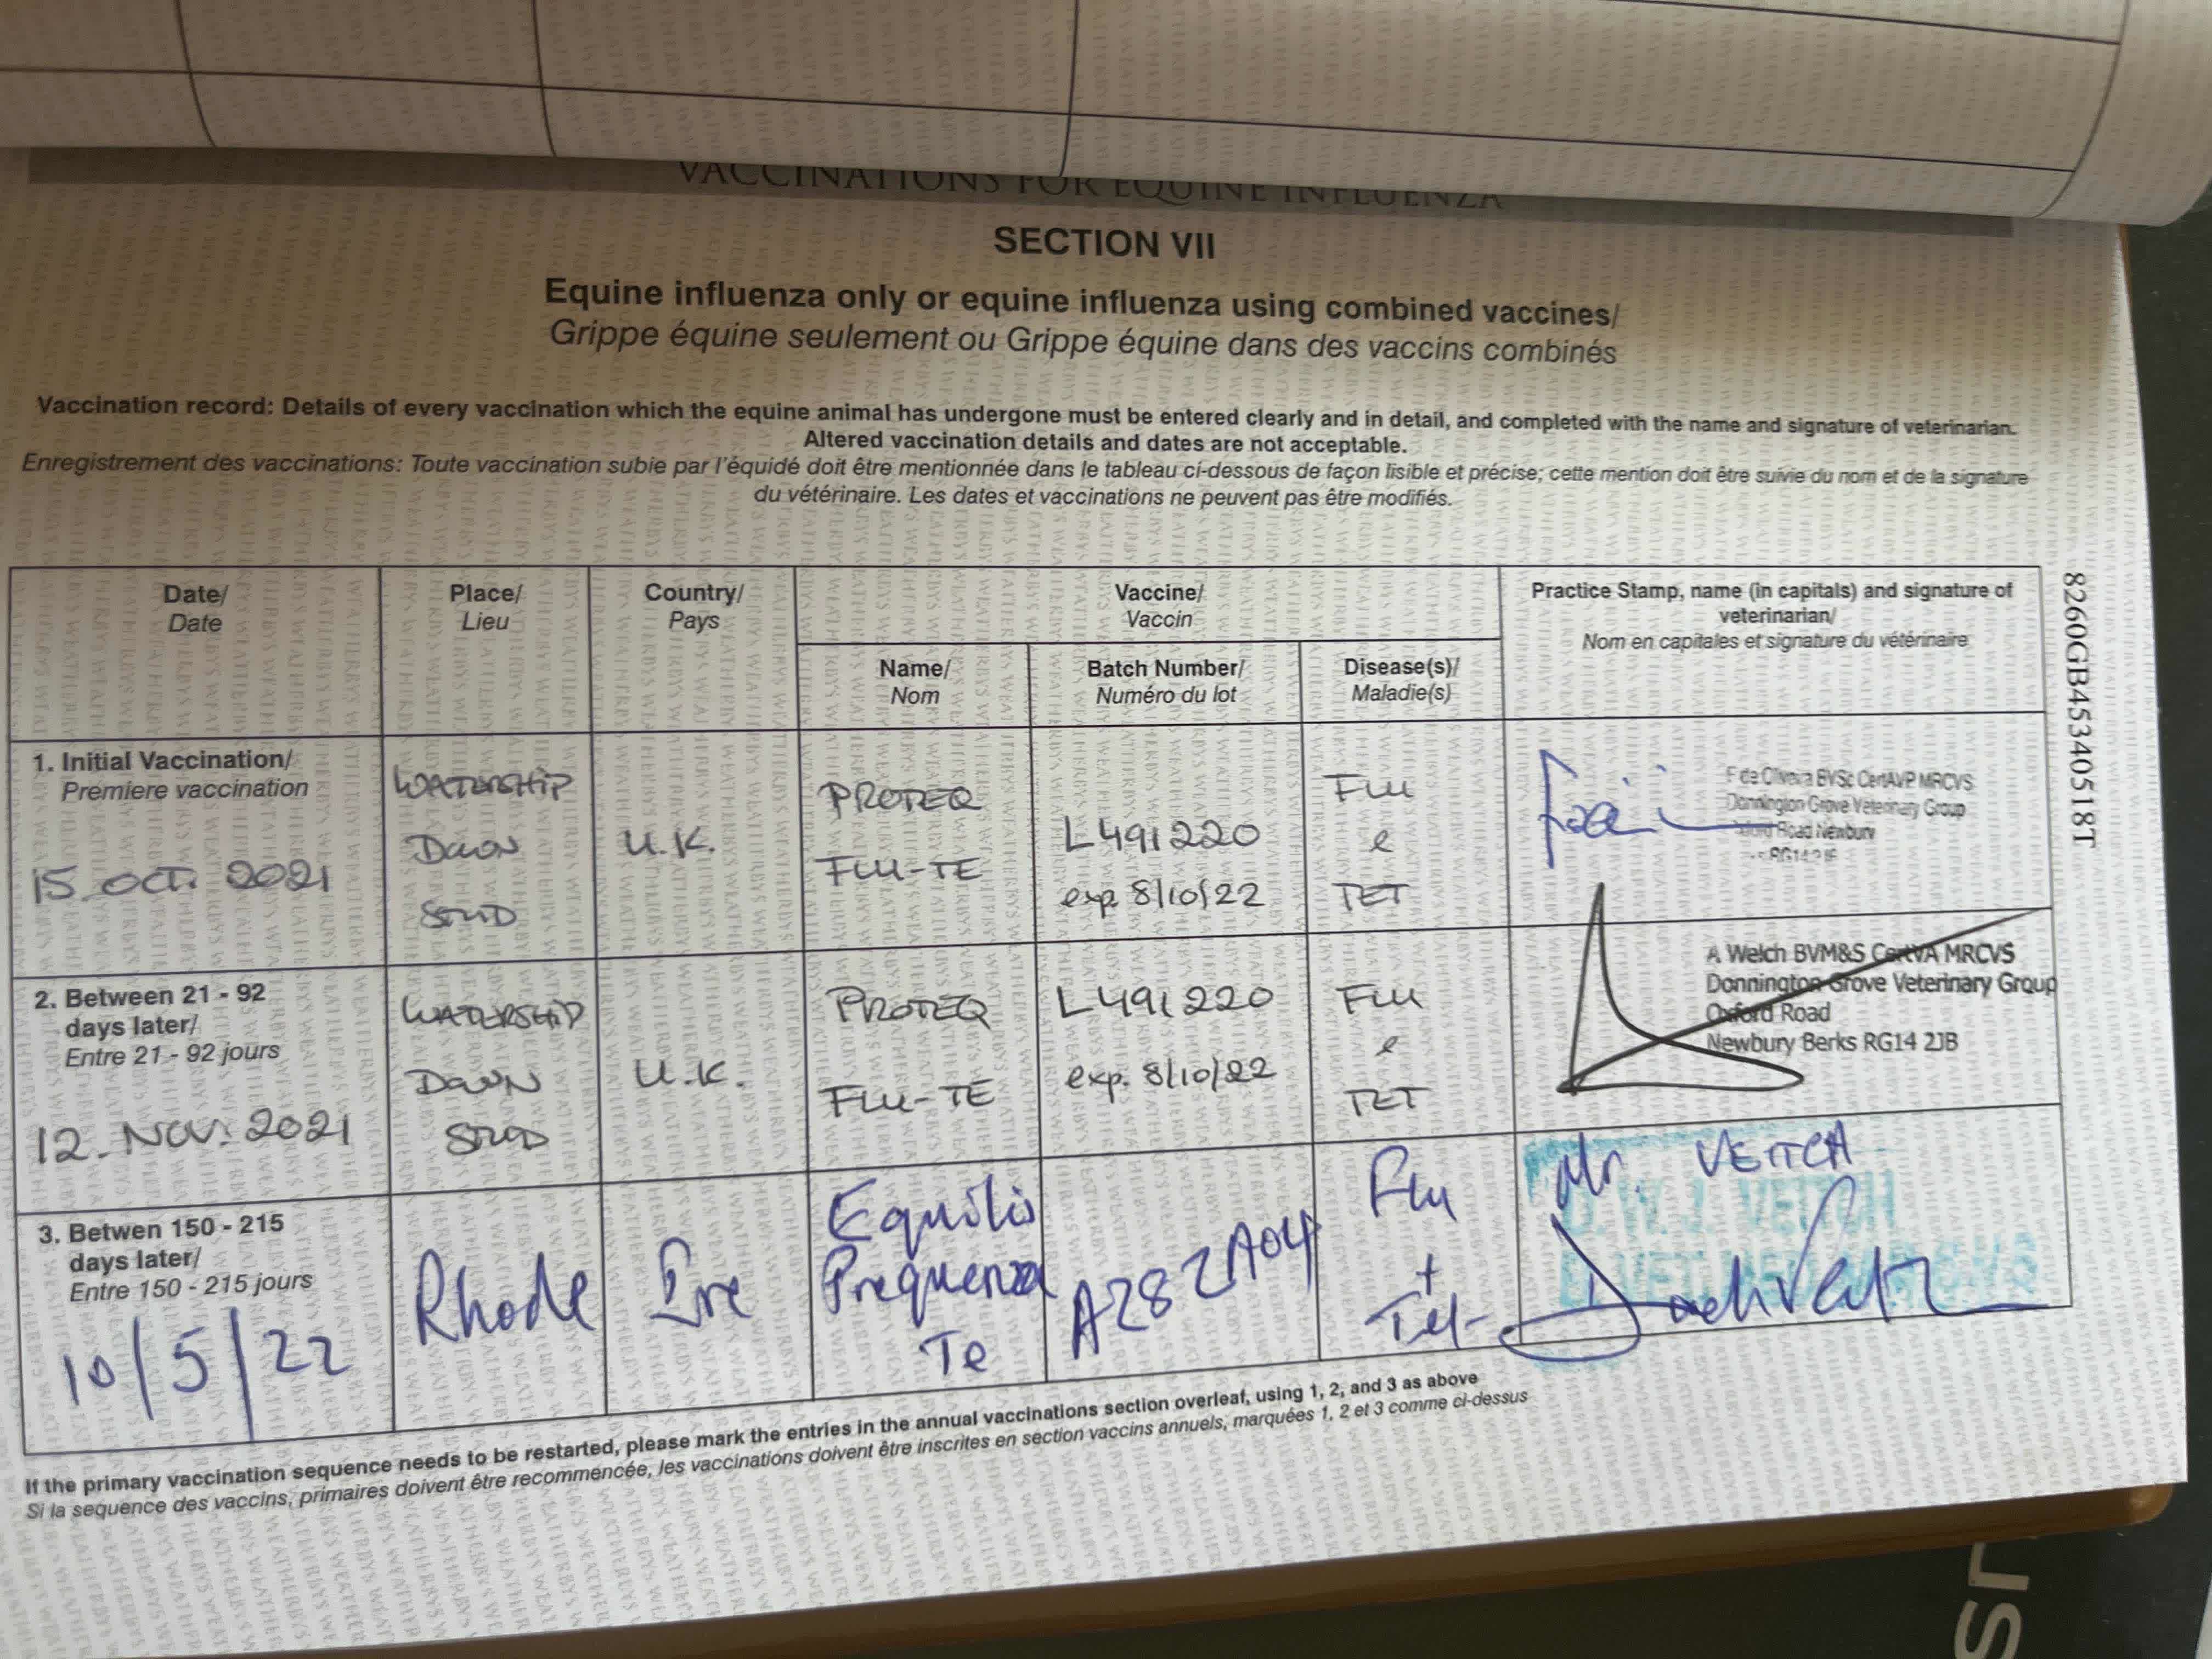 VACCINATIONS FOR EQUINE INFLUENZA
SECTION VII
Equine influenza only or equine influenza using combined vaccines/
Grippe équine seulement ou Grippe équine dans des vaccins combinés
Vaccination record: Details of every vaccination which the equine animal has undergone must be entered clearly and in detail, and completed with the name and signature of veterinarian.
Altered vaccination details and dates are not acceptable.
Enregistrement des vaccinations: Toute vaccination subie par l'équidé doit être mentionnée dans le tableau ci-dessous de façon lisible et précise; cette mention doit être suivie du nom et de la signature
du vétérinaire. Les dates et vaccinations ne peuvent pas être modifiés.
Date/
Date
Place/
Lieu
Country/
Pays
Vaccine/
Vaccin
Name/
Nom
Batch Number/
Numéro du lot
Disease(s)/
Maladie(s)
Practice Stamp, name (in capitals) and signature of
veterinarian/
Nom en capitales et signature du vétérinaire
8260GB45340518T
1. Initial Vaccination/
Premiere vaccination
15. OCT. 2021
WATERSHIP
DOWN
STUD
U.K.
PROTEQ
FLU-TE
L491220
exp. 8/10/22
FLU
e
TET
F de Oliveira BVSc CertAVP MRCVS
Donnington Grove Veterinary Group
Oxford Road Newbury
2. Between 21 - 92
days later/
Entre 21 - 92 jours
12. NOV. 2021
WATERSHIP
DOWN
STUD
U.K.
PROTEQ
FLU-TE
L491220
exp. 8/10/22
FLU
e
TET
A Welch BVM&S CertVA MRCVS
Donnington Grove Veterinary Group
Oxford Road
Newbury Berks RG14 2JB
3. Betwen 150 - 215
days later/
Entre 150 - 215 jours
10/5/22
Rhode
Ire
Equilis
Prequenza
Te
A282A04
Flu
+
Tet
Mr. VEITCH
D.W.J. VEITCH
If the primary vaccination sequence needs to be restarted, please mark the entries in the annual vaccinations section overleaf, using 1, 2, and 3 as above
Si la sequence des vaccins, primaires doivent être recommencée, les vaccinations doivent être inscrites en section vaccins annuels, marquées 1, 2 et 3 comme ci-dessus